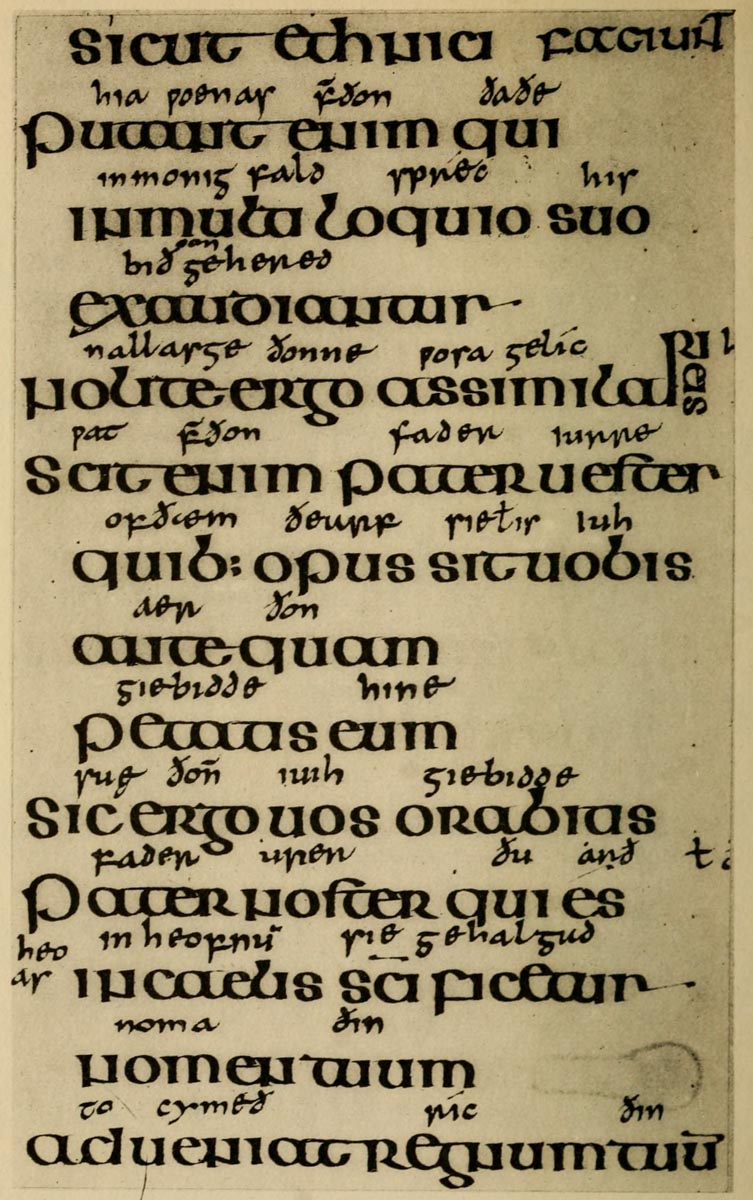 sicut ethnici faciunt
hia ƿoenas f̄ðon ðaðe
putant enim qui
in monigfald spréc his
in multiloquio suo
bið gehered
exaudiantur
nallas ge ðonne ƿosa gelic
nolite ergo assimilari eis
ƿat f̄ðon fader iurre
scit enim pater uester
of ðæm ðeurf sie ł is iuh
quib: opus sit uobis
aer ðon
antequam
giebidde hine
petatis eum
suę ðoñ iuih giebidde
sic ergo uos orabitis
fader urer ðu arð ł
pater noster qui es
in heofnū sie gehalgud
heo
as
in caelis sc̄ificetur
noma ðin
nomen tuum
to cymeð ric ðin
adueniat regnum tuū